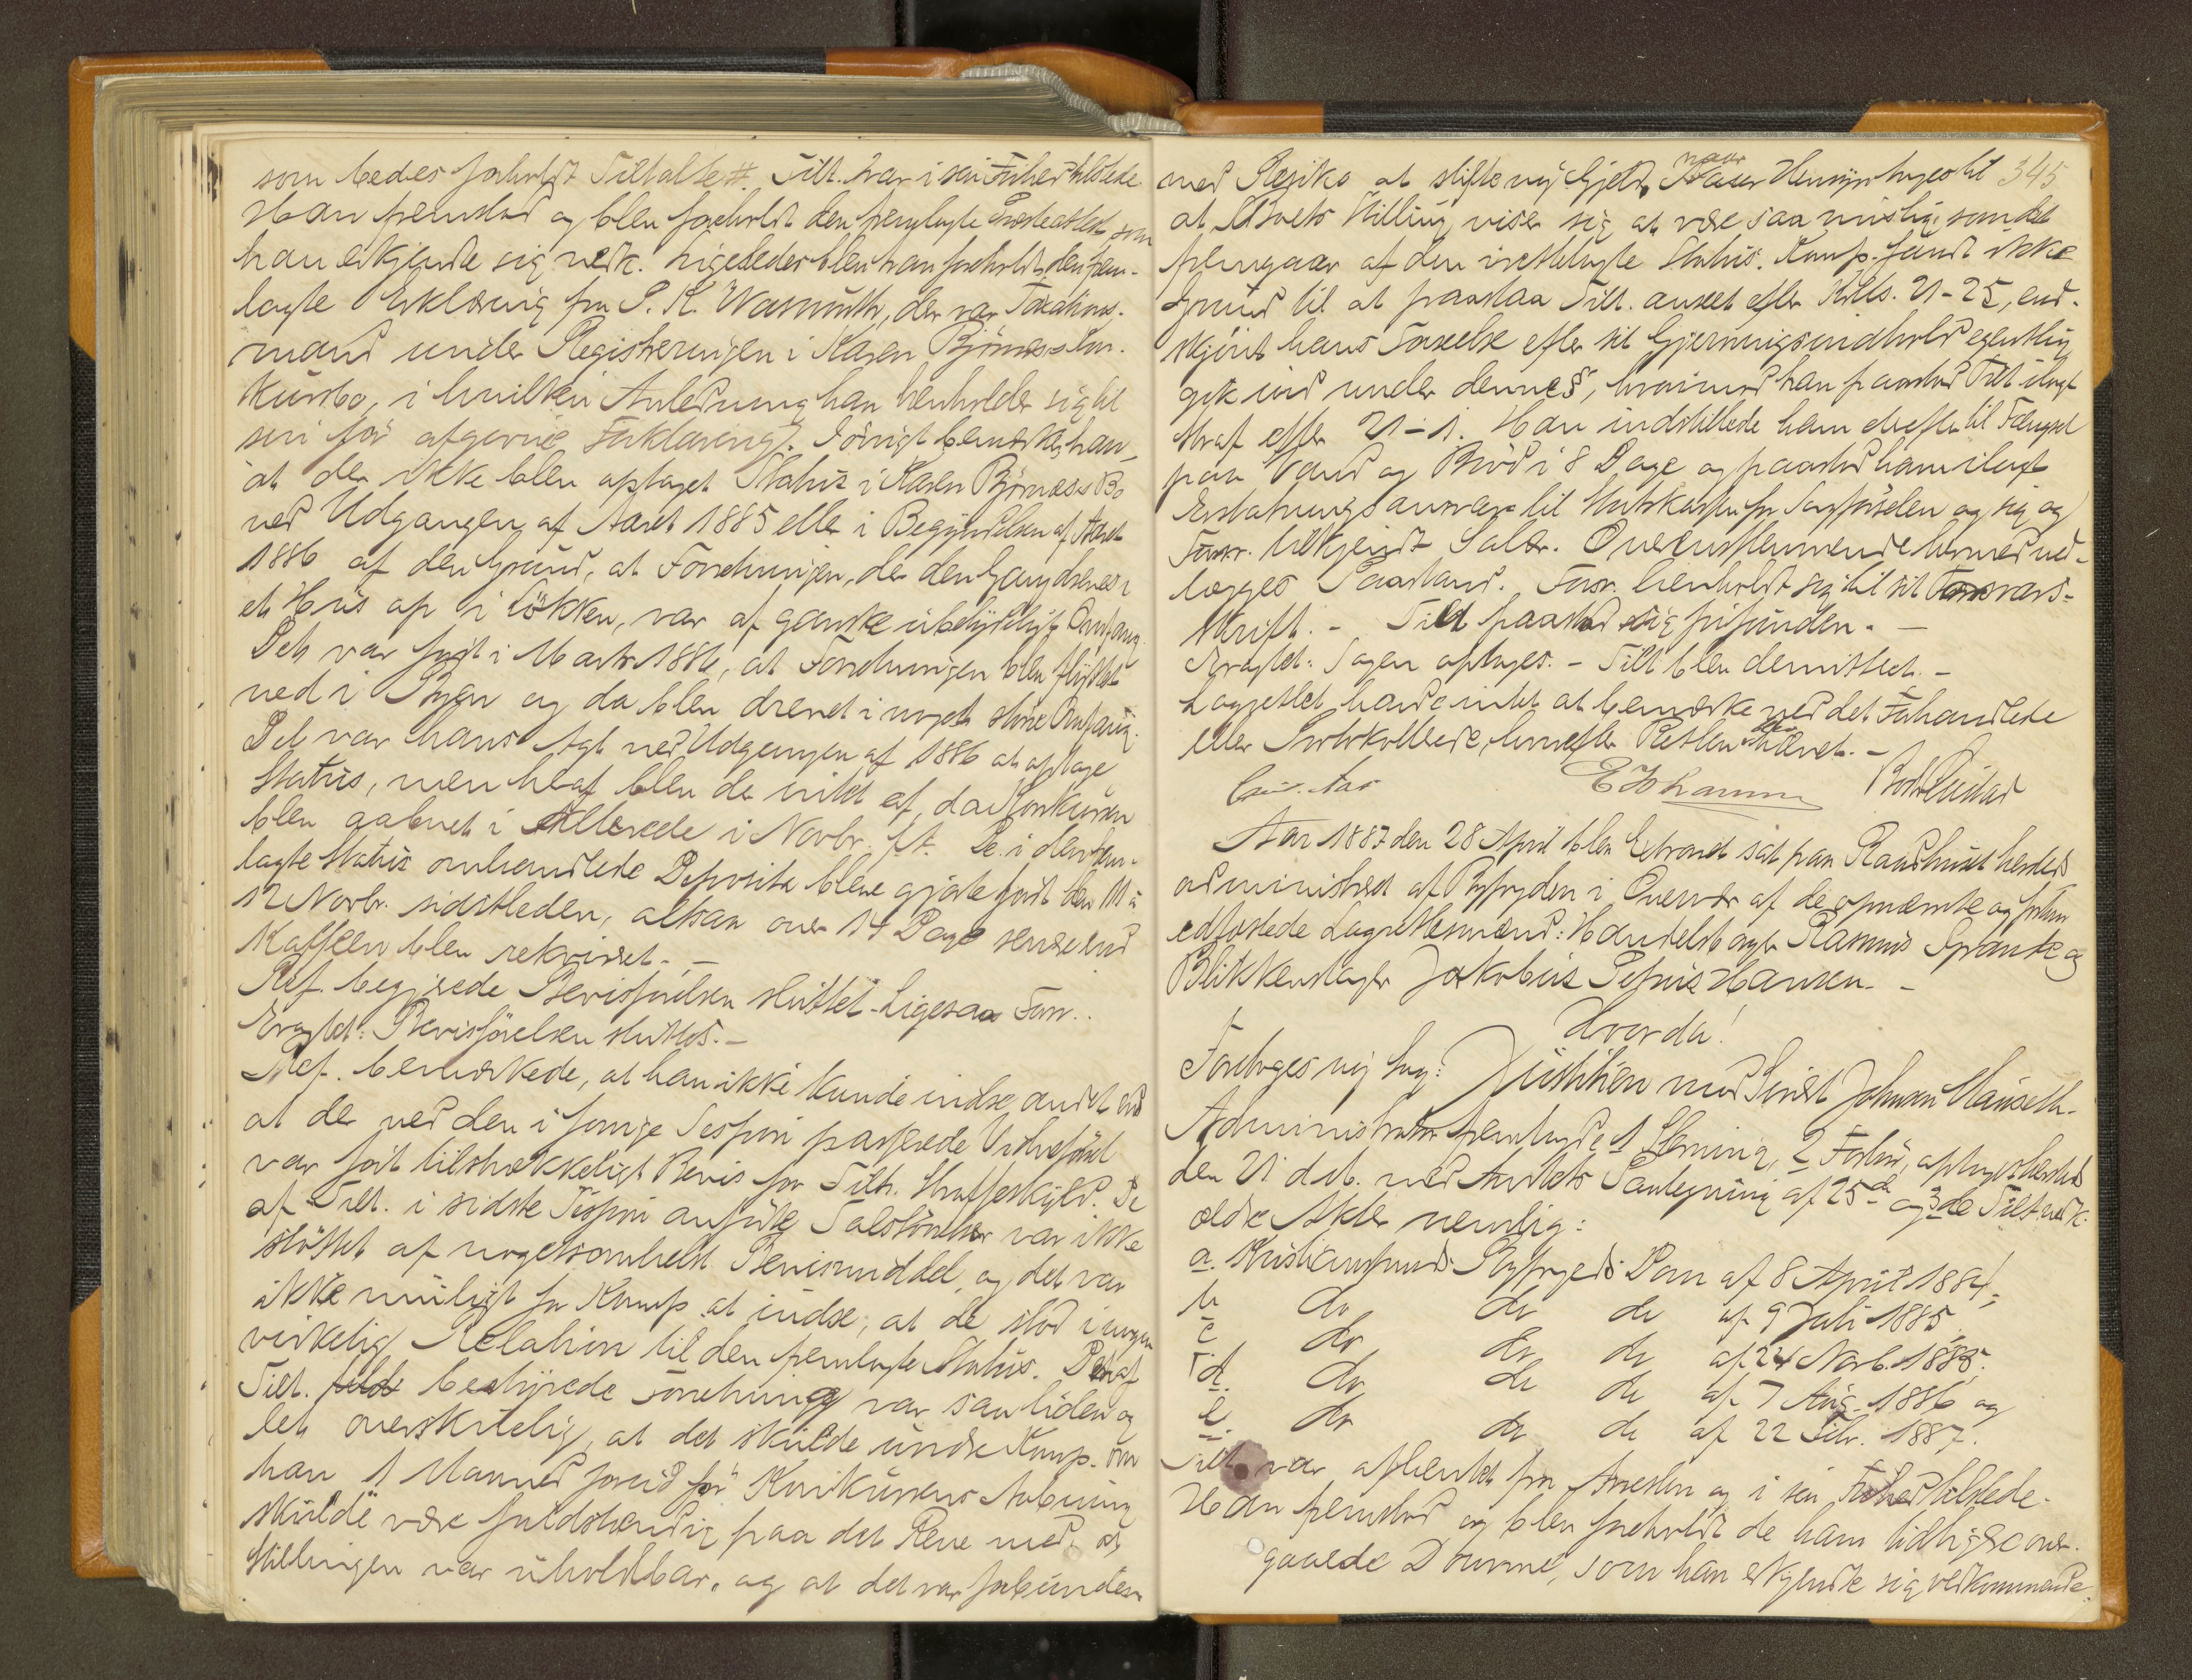 som bedes forholdt Tiltalte #. Tilt. var i sin Frihed tilstede.
Han fremstod og blev foreholdt den fremlagte Præsteattest, som
han erkjendte sig vedk. Ligeledes blev han foreholdt den frem-
lagte Erklæring fra S. K. Wasmuth, der var Taxations-
mand under Registreringen i Karen Bjørnæss Kon-
kursbo, i hvilken Anledning han henholder sig til
sin før afgivne Forklaring. Iøvrigt bemærker han,
at der ikke blev optaget Status i Karen Bjørnæss Bo
ved Udgangen af Aaret 1885 eller i Begyndelsen af Aaret
1886 af den Grund, at Forretningen, der den Gang dreves i
et Hus op i Løkken, var af ganske ubetydeligt Omfang.
Det var først i Marts 1886, at Forretningen blev flyttet
ned i Byen og da blev drevet i noget større Omfang.
Det var hans Agt ved Udgangen af 1886 at optage
Status, men heraf blev der intet af, da Konkursen
blev aabnet i Allerede i Novbr. f. A. De i den frem-
lagte Status omhandlede Deposita bleve gjorte først den 11 à
12 Novbr. sidstleden, altsaa over 14 Dage senere end
Kaffeen blev rekvireret. –
Ref. begjærede Bevisførelsen sluttet. Ligesaa Forsv.
Eragtet: Bevisførelsen sluttes. –
Ref. bemærkede, at han ikke kunde indse andet end
at der ved den i forrige Session passerede Vidneførsel
var ført tilstrækkeligt Bevis for Tilt. Straffeskyld. De
af Tilt. i sidste Session anførte Talstørrelser var ikke
støttet af nogetsomhelst Bevismiddel, og det var
ikke muligt for Komp. at indse, at de stod i nogen
virkelig Relation til den fremlagte Status. Den af
Tilt. bestyrede Forretning var saa liden og
let overskuelig, at det skulde undre Komp. om
han 1 Maaned forud før Konkursens Aabning
skulde være fuldstændig paa det Rene med, at
Stillingen var uholdbar, og at det var forbunden
345
med Risiko at stifte ny Gjeld, naar Hensyn tages til
at Boets Stilling viser sig at være saa mislig, som det
fremgaar af den irettelagte Status. Komp. fandt ikke
Grund til at paastaa Tilt. anseet efter Krlls. 21-25, end-
skjønt hans Forseelse efter sit Gjerningsindhold egentlig
gik ind under denne §, hvorimod han paastod Tilt. ilagt
Straf efter 21-1. Han indstillede ham derefter til Fængsel
paa Vand og Brød i 8 Dage og paastod ham ilagt
Erstatningsansvar til Statskassen for Sagførselen og sig og
Forsv. tilkjendt Salær. Overensstemmende hermed ned-
lægges Paastand. Forsv. henholdt sig til sit Forsvars-
skrift. – Tilt. paastod sig frifunden. –
Eragtet: Sagen optages. – Tilt. blev demitteret. –
Lagrettet havde intet at bemærke ved det Forhandlede
eller Protokollerede, hvorefter Retten blev hævet. –
Aar 1887 den 28 April blev Extraret sat paa Raadhuset hersteds
administreret af Byfogden i Overvær af de opnævnte og forhen
edfæstede Lagrettesmænd: Handelsborger Rasmus Spanke og
Blikkenslager Jakobus Petrus Hansen. –
Hvorda!
Foretoges ny Sag: Justitien mod Sivert Johnsen Hauseth.
Administrator fremlagde 1 Stevning, 2 Forhør, optaget herstd.
den 21 ds. med Amtets Paategning af 25de og 3de Tilt. vedk.
ældre Akter nemlig:
a. Kristiansunds Byfogeds Dom af 8 April 1884,
b do do do af 9 Juli 1885,
c do do do af 24 Novb. 1885,
d. do do do af 7 Aug. 1886 og
e. do do do af 22 Febr. 1887.
Tilt. var afhentet fra Arresten og i sin Frihed tilstede.
Han fremstod og blev foreholdt de ham tidligere over-
gaaede Domme, som han erkjendte sig vedkommende.